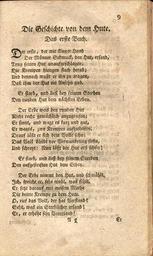 9
Die Geschichte von dem Hute.
Das erste Buch.
Der erste, der mit kluger Hand
Der Männer Schmuck, den Hut, erfand,
Trug seinen Hut unaufgeschlagen;
Die Krempen hiengen flach herab;
Und dennoch wußt er ihn zu tragen,
Daß ihm der Hut ein Ansehn gab.
Er starb, und ließ bey seinem Sterben
Den runden Hut dem nächsten Erben.
Der Erbe weis den runden Hut
Nicht recht gemächlich anzugreifen;
Er sinnt, und wagt es kurz und gut,
Er wagts, zwo Krempen aufzusteifen.
Drauf läßt er sich dem Volke sehn;
Das Volk bleibt vor Verwundrung stehn,
Und schreyt: Nun läßt der Hut erst schön!
Er starb, und ließ bey seinem Sterben
Den aufgesteiften Hut dem Erben.
Der Erbe nimmt den Hut, und schmählt.
Ich, spricht er, sehe wohl, was fehlt.
Er setzt darauf mit weisem Muthe
Die dritte Krempe zu dem Hute.
O, rief das Volk, der hat Verstand!
Seht, was ein Sterblicher erfand!
Er, er erhöht sein Vaterland!
A 5
Er